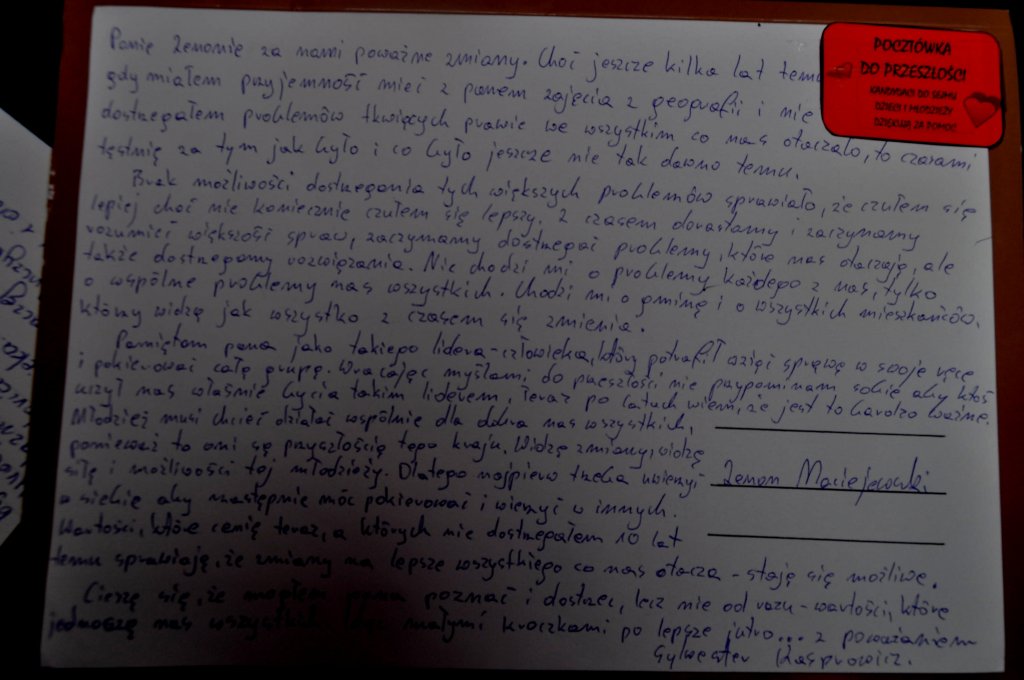 Panie Zenonie za nami poważne zmiany. Choć jeszcze kilka lat temu
gdy miałem przyjemność mieć z panem zajęcia z geografii i nie
dostrzegałem problemów tkwiących prawie we wszystkim co nas otaczało, to czasami
tęsknię za tym jak było i co było jeszcze nie tak dawno temu.
POCZTÓWKA
DO PRZESZŁOŚCI
KANDYDACI DO SEJMU
DZIECI I MŁODZIEŻY
DZIĘKUJĄ ZA POMOC
Brak możliwości dostrzegania tych większych problemów sprawiało, że czułem się
lepiej choć nie koniecznie czułem się lepszy. Z czasem dorastamy i zaczynamy
rozumieć większość spraw, zaczynamy dostrzegać problemy, które nas otaczają, ale
także dostrzegamy rozwiązania. Nie chodzi mi o problemy każdego z nas, tylko
o wspólne problemy nas wszystkich. Chodzi mi o gminę i o wszystkich mieszkańców,
którzy widzą jak wszystko z czasem się zmienia.
Pamiętam pana jako takiego lidera-człowieka, który potrafił wziąć sprawę w swoje ręce
i pokierować całą grupą. Wracając myślami do przeszłości nie przypominam sobie aby ktoś
uczył nas właśnie bycia takim liderem, teraz po latach wiem, że jest to bardzo ważne.
Młodzież musi chcieć działać wspólnie dla dobra nas wszystkich,
ponieważ to oni są przyszłością tego kraju. Widzę zmiany, widzę
siłę i możliwości tej młodzieży. Dlatego najpierw trzeba uwierzyć
w siebie aby następnie móc pokierować i wierzyć w innych.
Wartości, które cenię teraz, a których nie dostrzegałem 10 lat
temu sprawiają, że zmiany na lepsze wszystkiego co nas otacza - stają się możliwe.
Cieszę się, że mogłem pana poznać i dostrzec, lecz nie od razu - wartości, które
jednoczą nas wszystkich małymi kroczkami po lepsze jutro... z poważaniem
Sylwester Kasprowicz.
Zenon Maciejewski